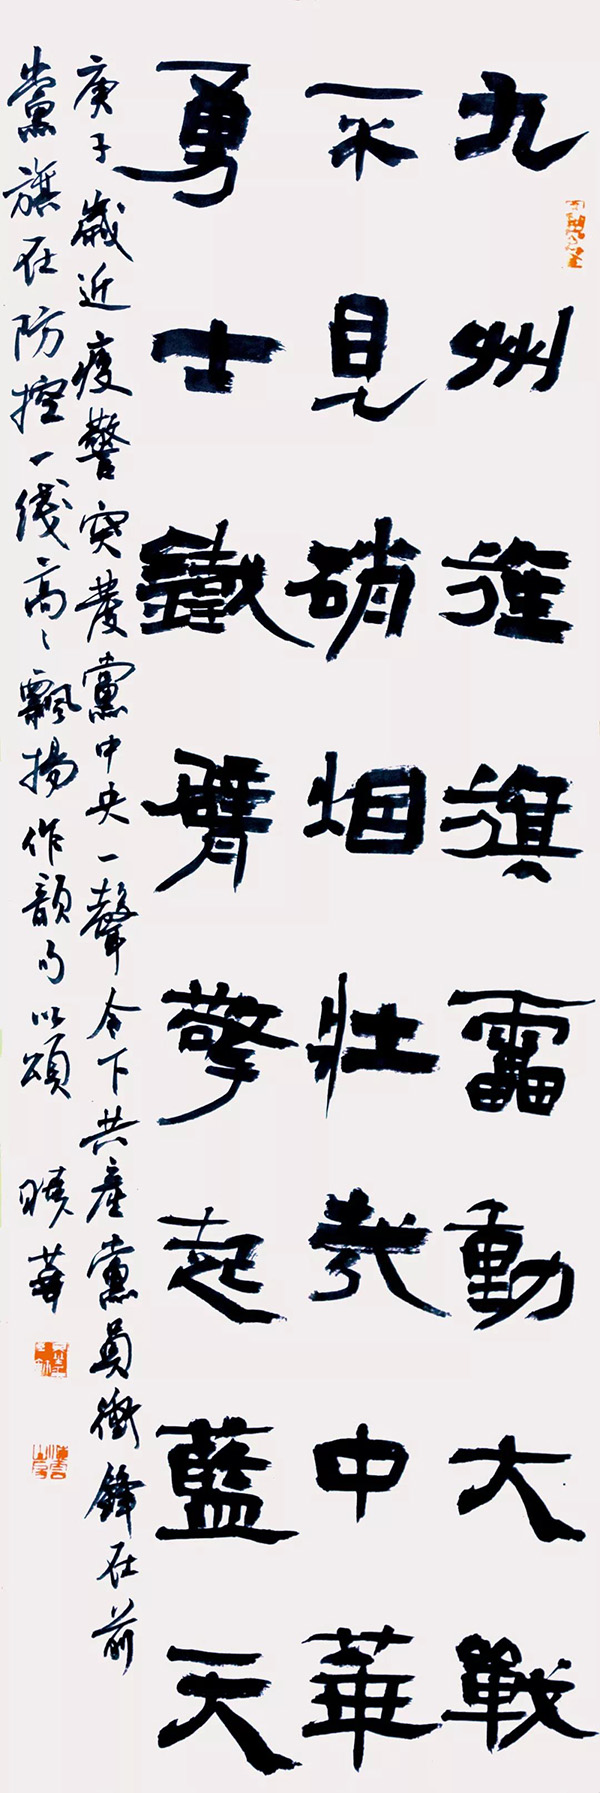 九州旌旗雷動大戰
不見硝烟壯哉中華
勇士鐵臂擎起藍天
庚子歲近疫警突發黨中央一聲令下共產黨員衝鋒在前
黨旗在防控一线高〻飄揚作韻句以頌 曉華